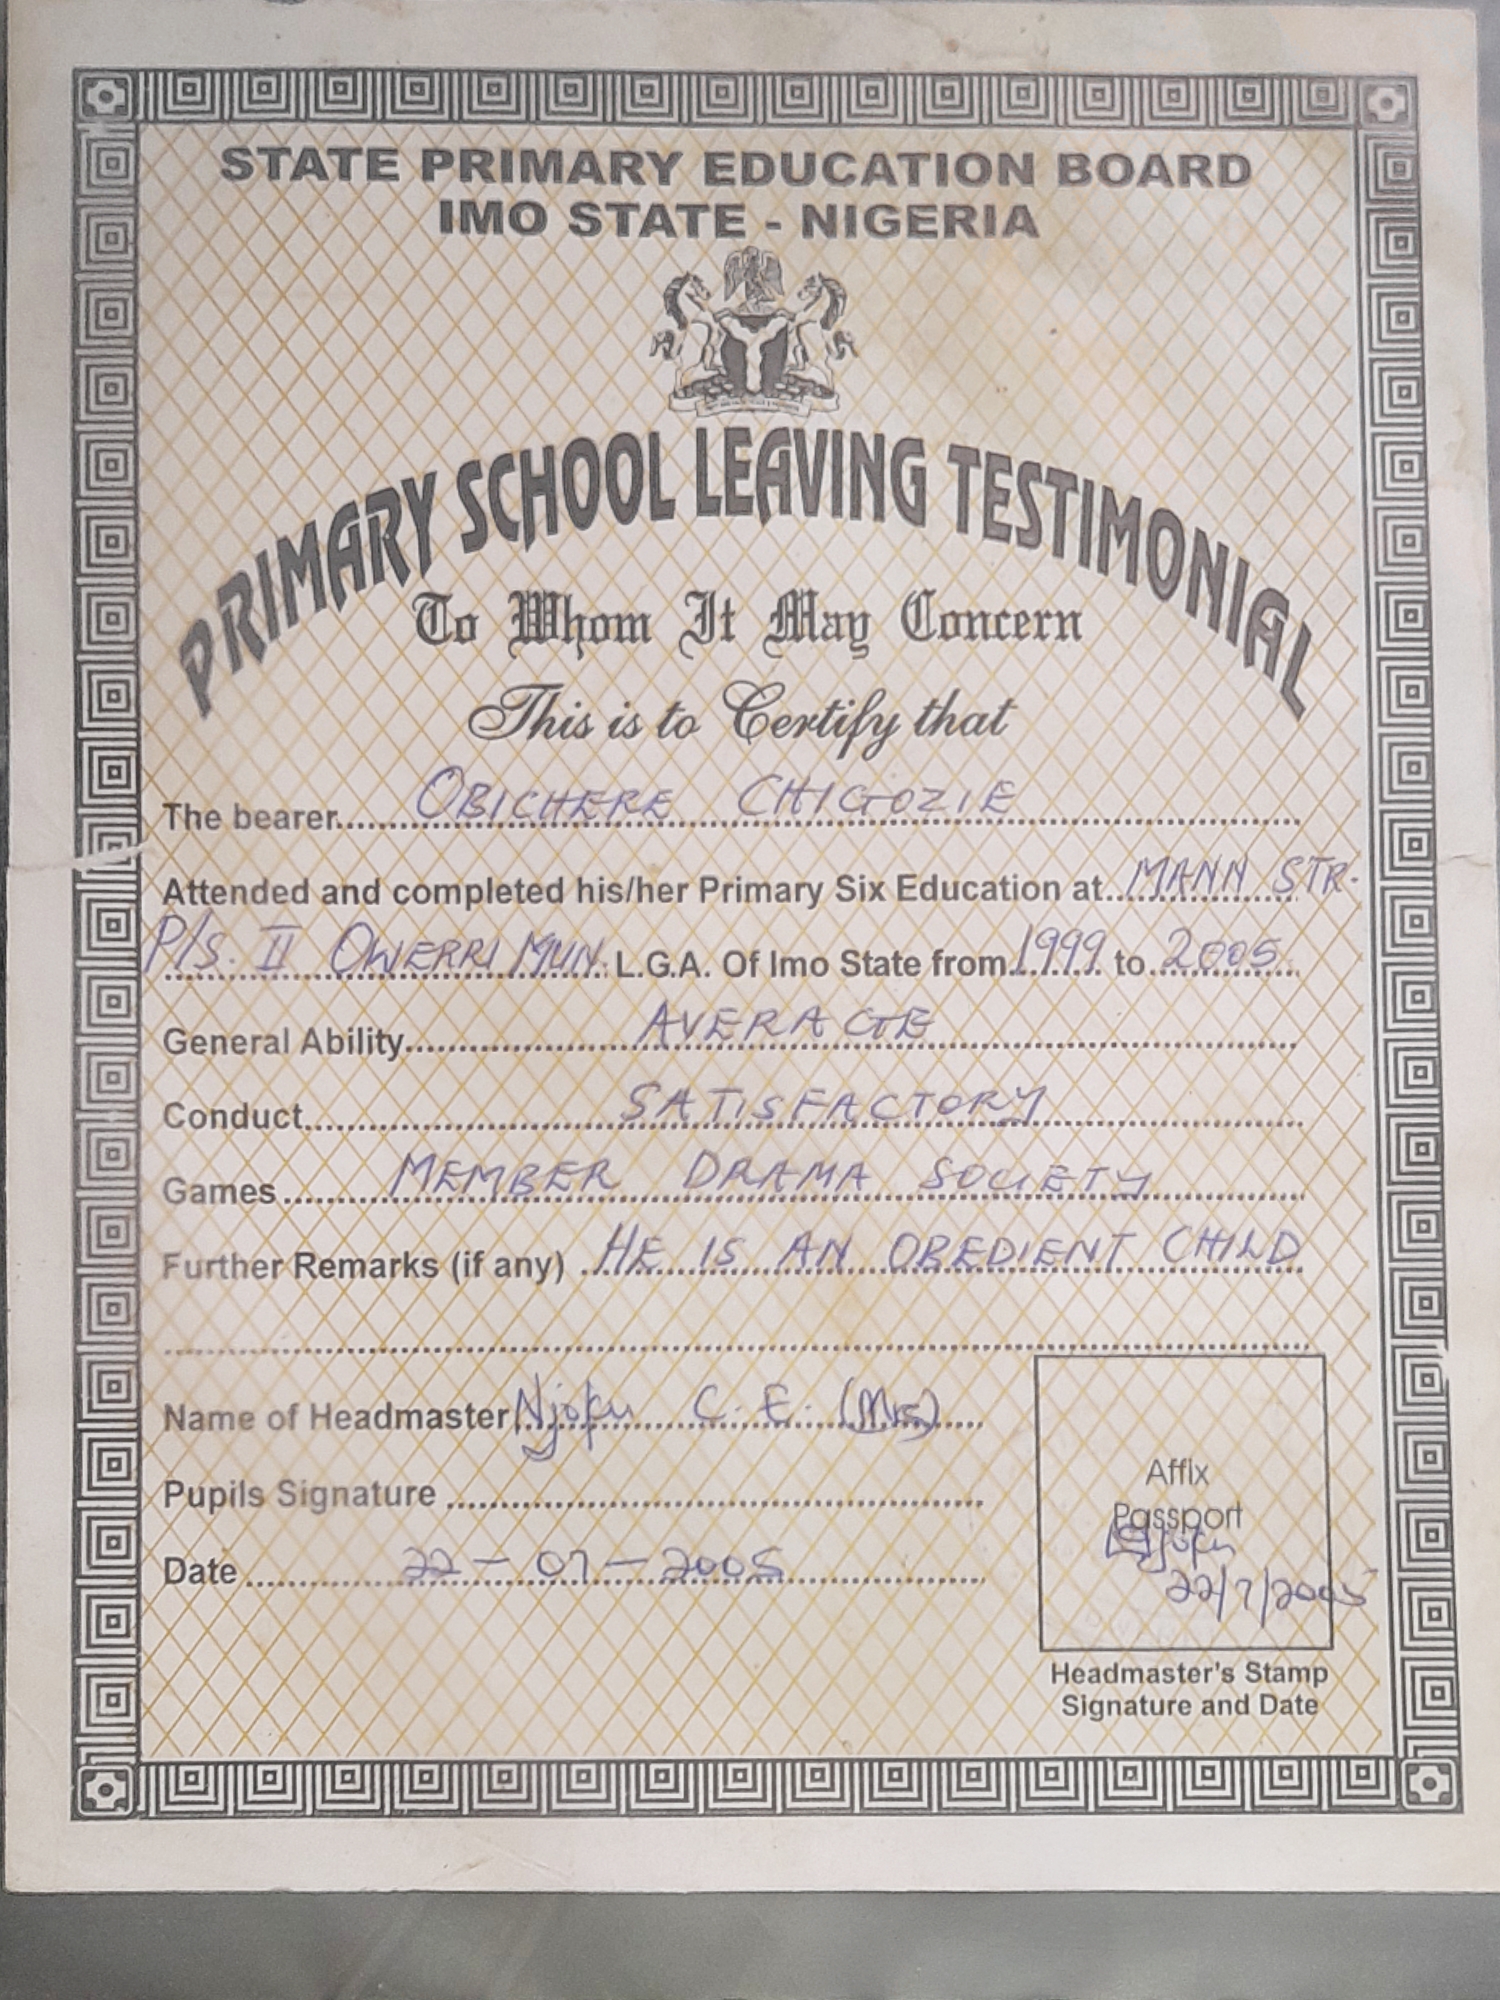 STATE PRIMARY EDUCATION BOARD
IMO STATE - NIGERIA
PRIMARY SCHOOL LEAVING TESTIMONIAL
To Whom It May Concern
This is to Certify that
The bearer OBICHERE CHIGOZIE
Attended and completed his/her Primary Six Education at MANN STR.
P/S. II OWERRI MUN. L.G.A. Of Imo State from 1999 to 2005
General Ability AVERAGE
Conduct SATISFACTORY
Games MEMBER DRAMA SOCIETY
Further Remarks (if any) HE IS AN OBEDIENT CHILD
Name of Headmaster Njoku C. E. (Mrs)
Pupils Signature
Date 22 - 07 - 2005
Affix
Passport
Njoku
22/7/2005
Headmaster's Stamp
Signature and Date